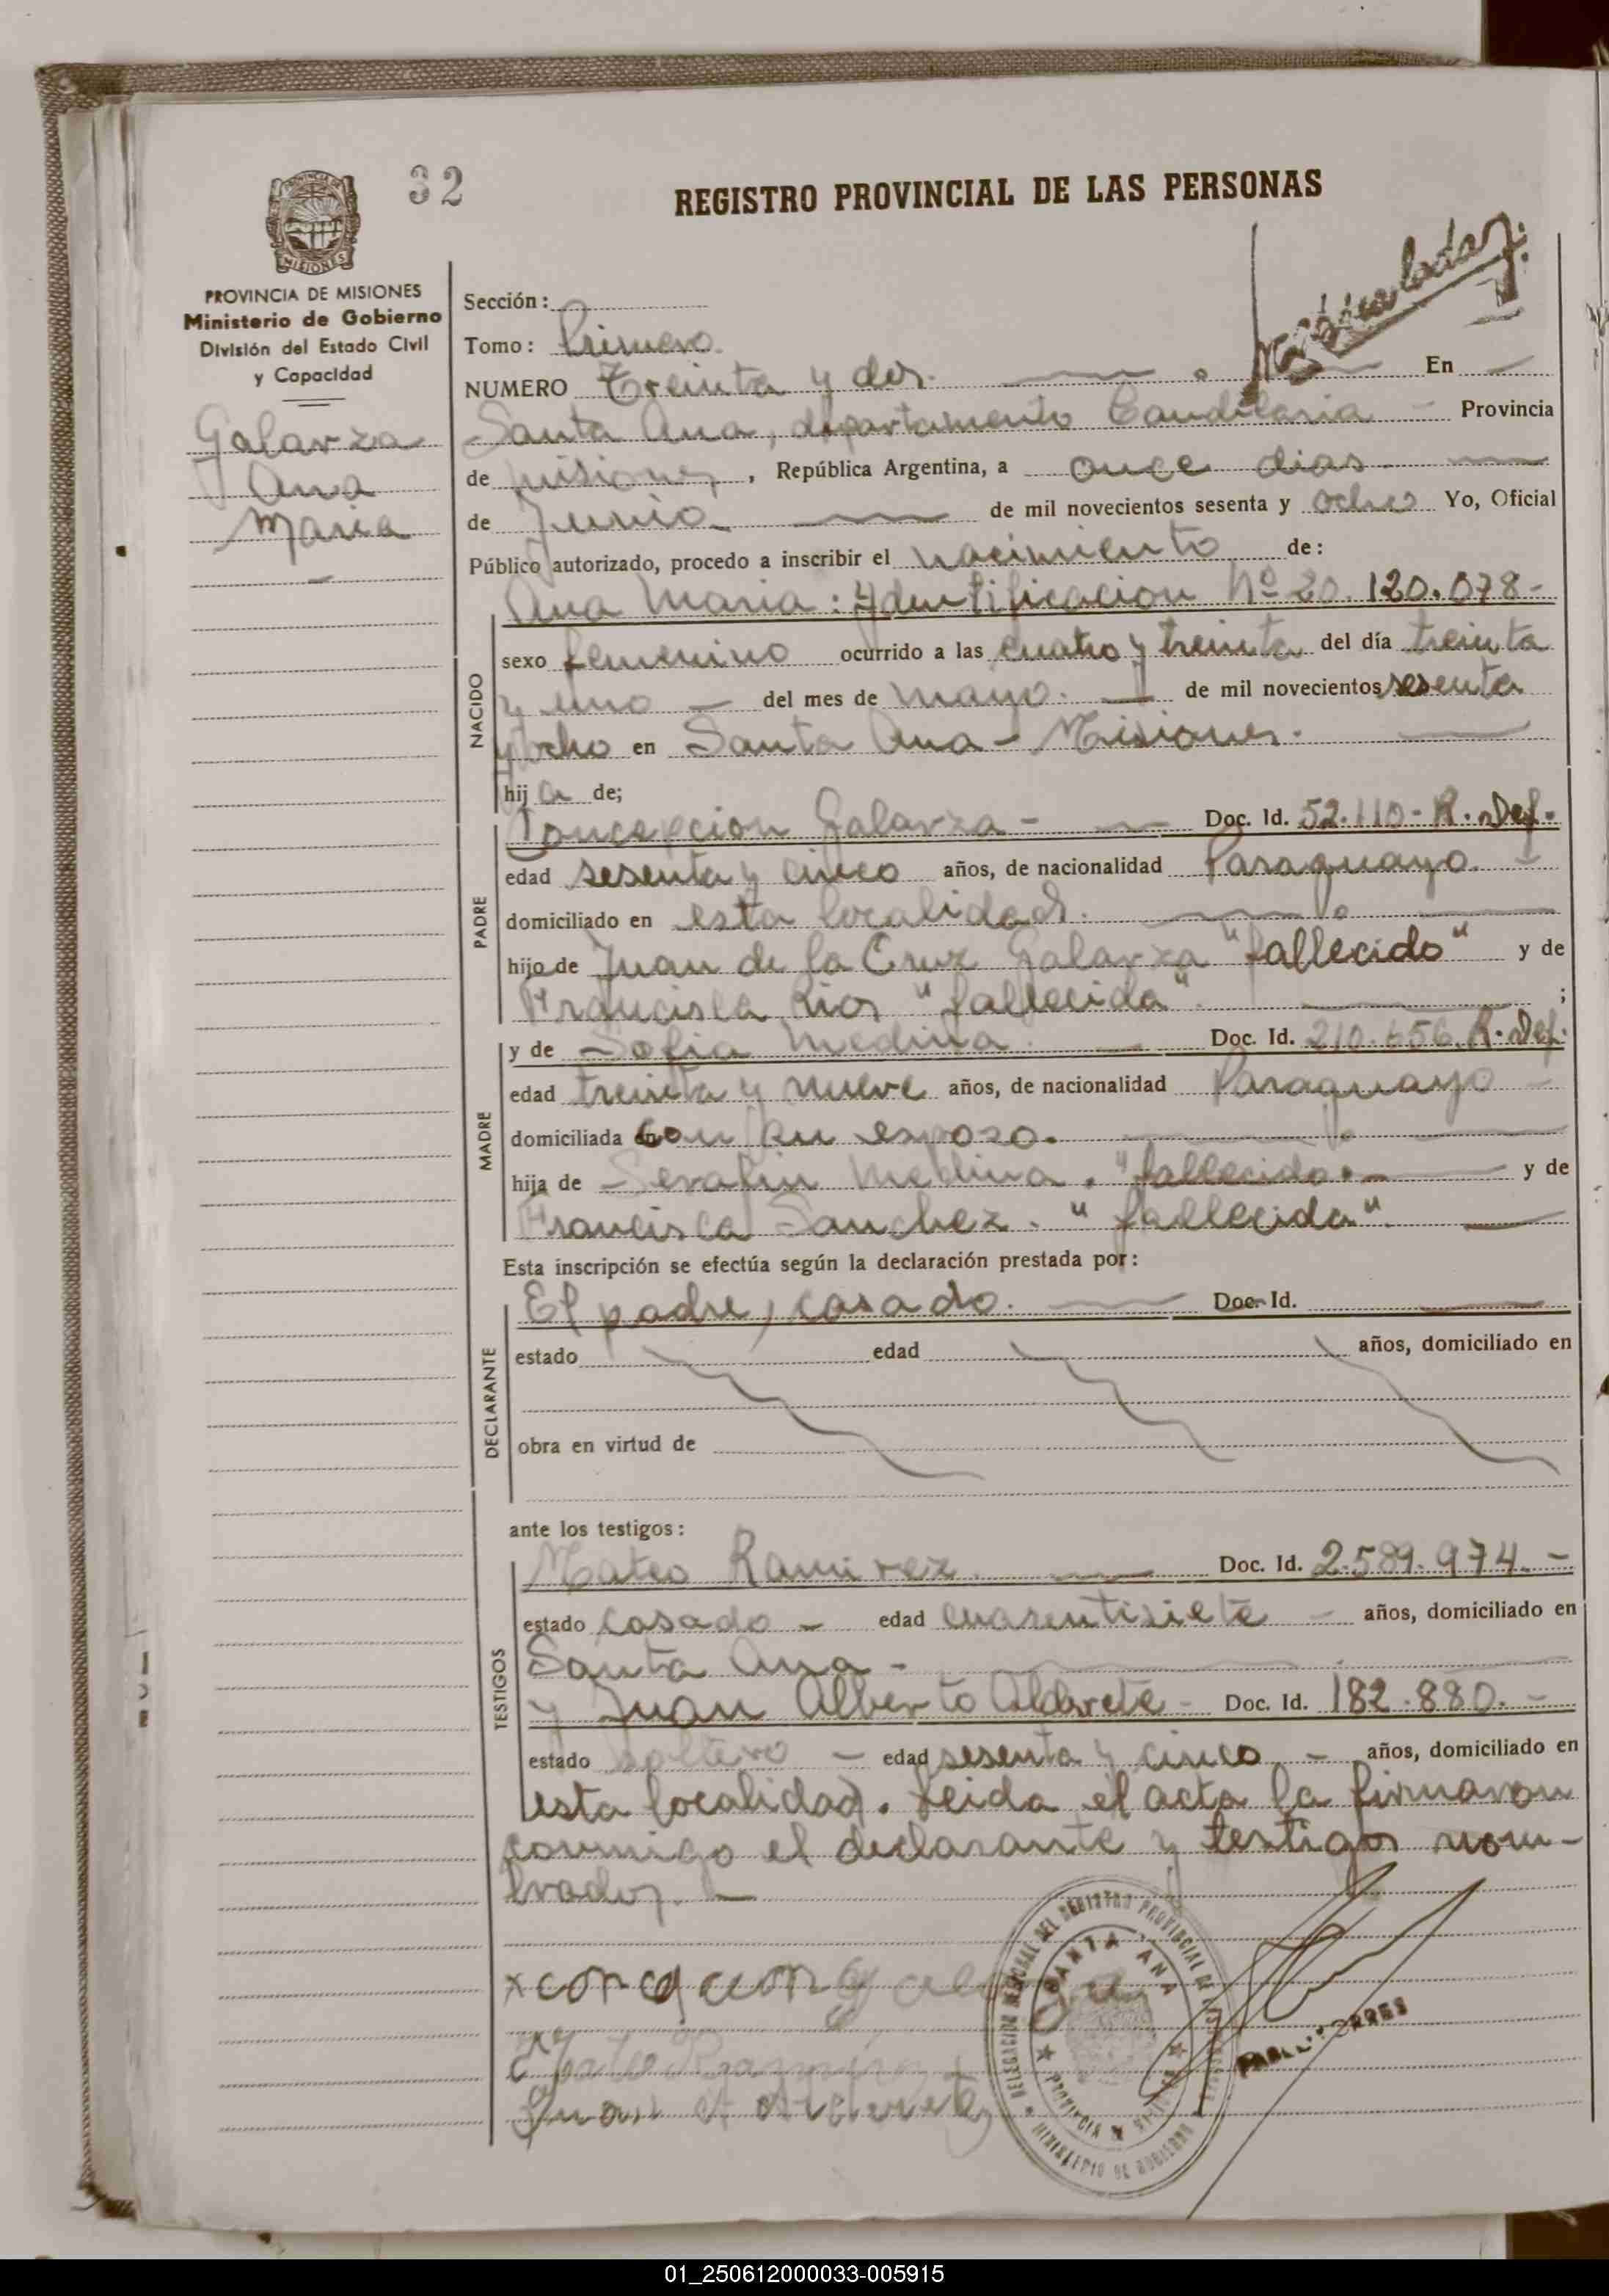 32
REGISTRO PROVINCIAL DE LAS PERSONAS
PROVINCIA DE
MISIONES
PROVINCIA DE MISIONES
Ministerio de Gobierno
División del Estado Civil
y Capacidad
Galarza
Ana
Maria
Sección:
Tomo: Primero.
NUMERO Treinta y dos. En
Santa Ana, departamento Candelaria Provincia
de misiones, República Argentina, a once dias.
de Junio de mil novecientos sesenta y ocho Yo, Oficial
Público autorizado, procedo a inscribir el nacimiento de:
Ana Maria: Ydentificacion Nº 20.120.078-
NACIDO
sexo femenino ocurrido a las cuatro y treinta del día treinta
y uno del mes de mayo. de mil novecientos sesenta
y ocho en Santa Ana - Misiones.
hija de;
PADRE
Concepcion Galarza - Doc. Id. 52.110- R. Def.
edad sesenta y cinco años, de nacionalidad Paraguayo.
domiciliado en esta localidad.
hijo de Juan de la Cruz Galarza "fallecido" y de
Francisca Rios "fallecida". ;
MADRE
y de Sofia Medina. Doc. Id. 210.656. R. Def.
edad treinta y nueve años, de nacionalidad Paraguayo
domiciliada con su esposo.
hija de Serafin Medina. "fallecido. y de
Francisca Sanchez. "fallecida".
Esta inscripción se efectúa según la declaración prestada por:
DECLARANTE
El padre, casado. Doc. Id.
estado edad años, domiciliado en
obra en virtud de
ante los testigos:
TESTIGOS
Mateo Ramirez. Doc. Id. 2.589.974.-
estado casado - edad cuarentisiete - años, domiciliado en
Santa Ana -
y Juan Alberto Alderete - Doc. Id. 182.880.-
estado soltero - edad sesenta y cinco - años, domiciliado en
esta localidad. Leida el acta la firmaron
conmigo el declarante y testigos nom-
brados.
SANTA ANA
PROVINCIA DE MISIONES
MINISTERIO DE GOBIERNO
TORRES
01_250612000033-005915